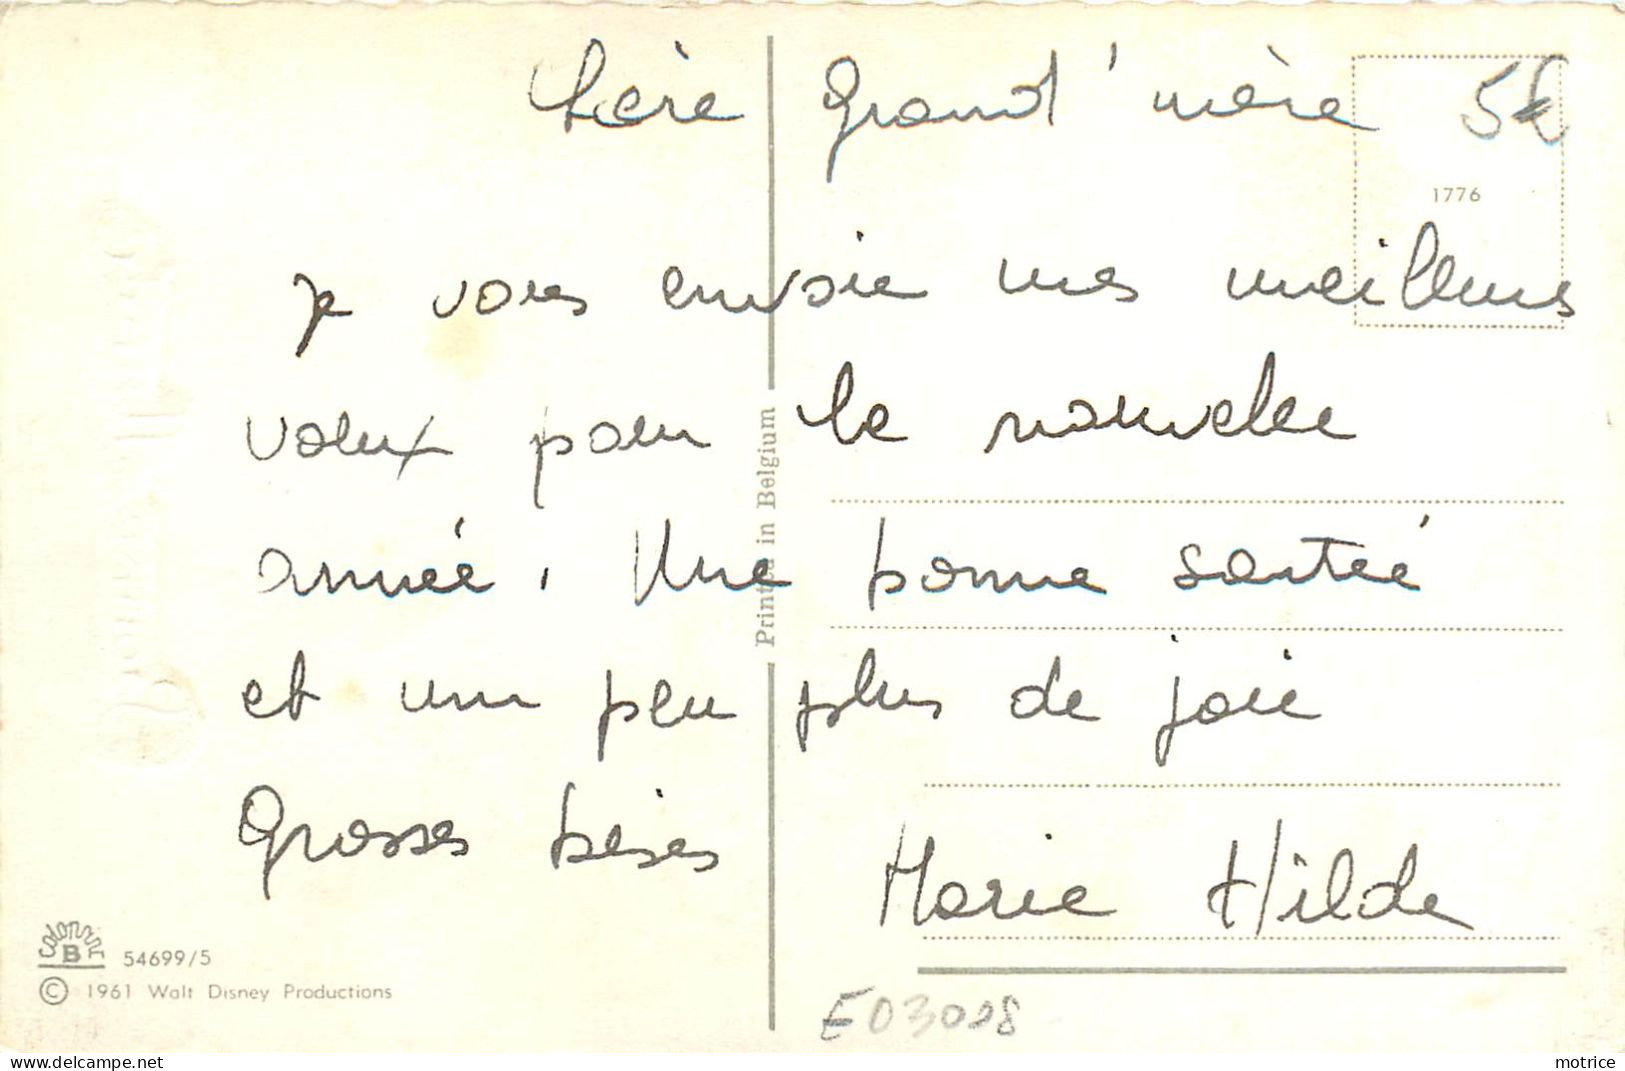 Chère Grand'mère 5€
1776
je vous envoie mes meilleurs
voeux pour la nouvelle
année. Une bonne santée
et un peu plus de joie
Grosses bises
Marie Hilde
Printed in Belgium
colorprint
B 54699/5
© 1961 Walt Disney Productions
E03008
motrice